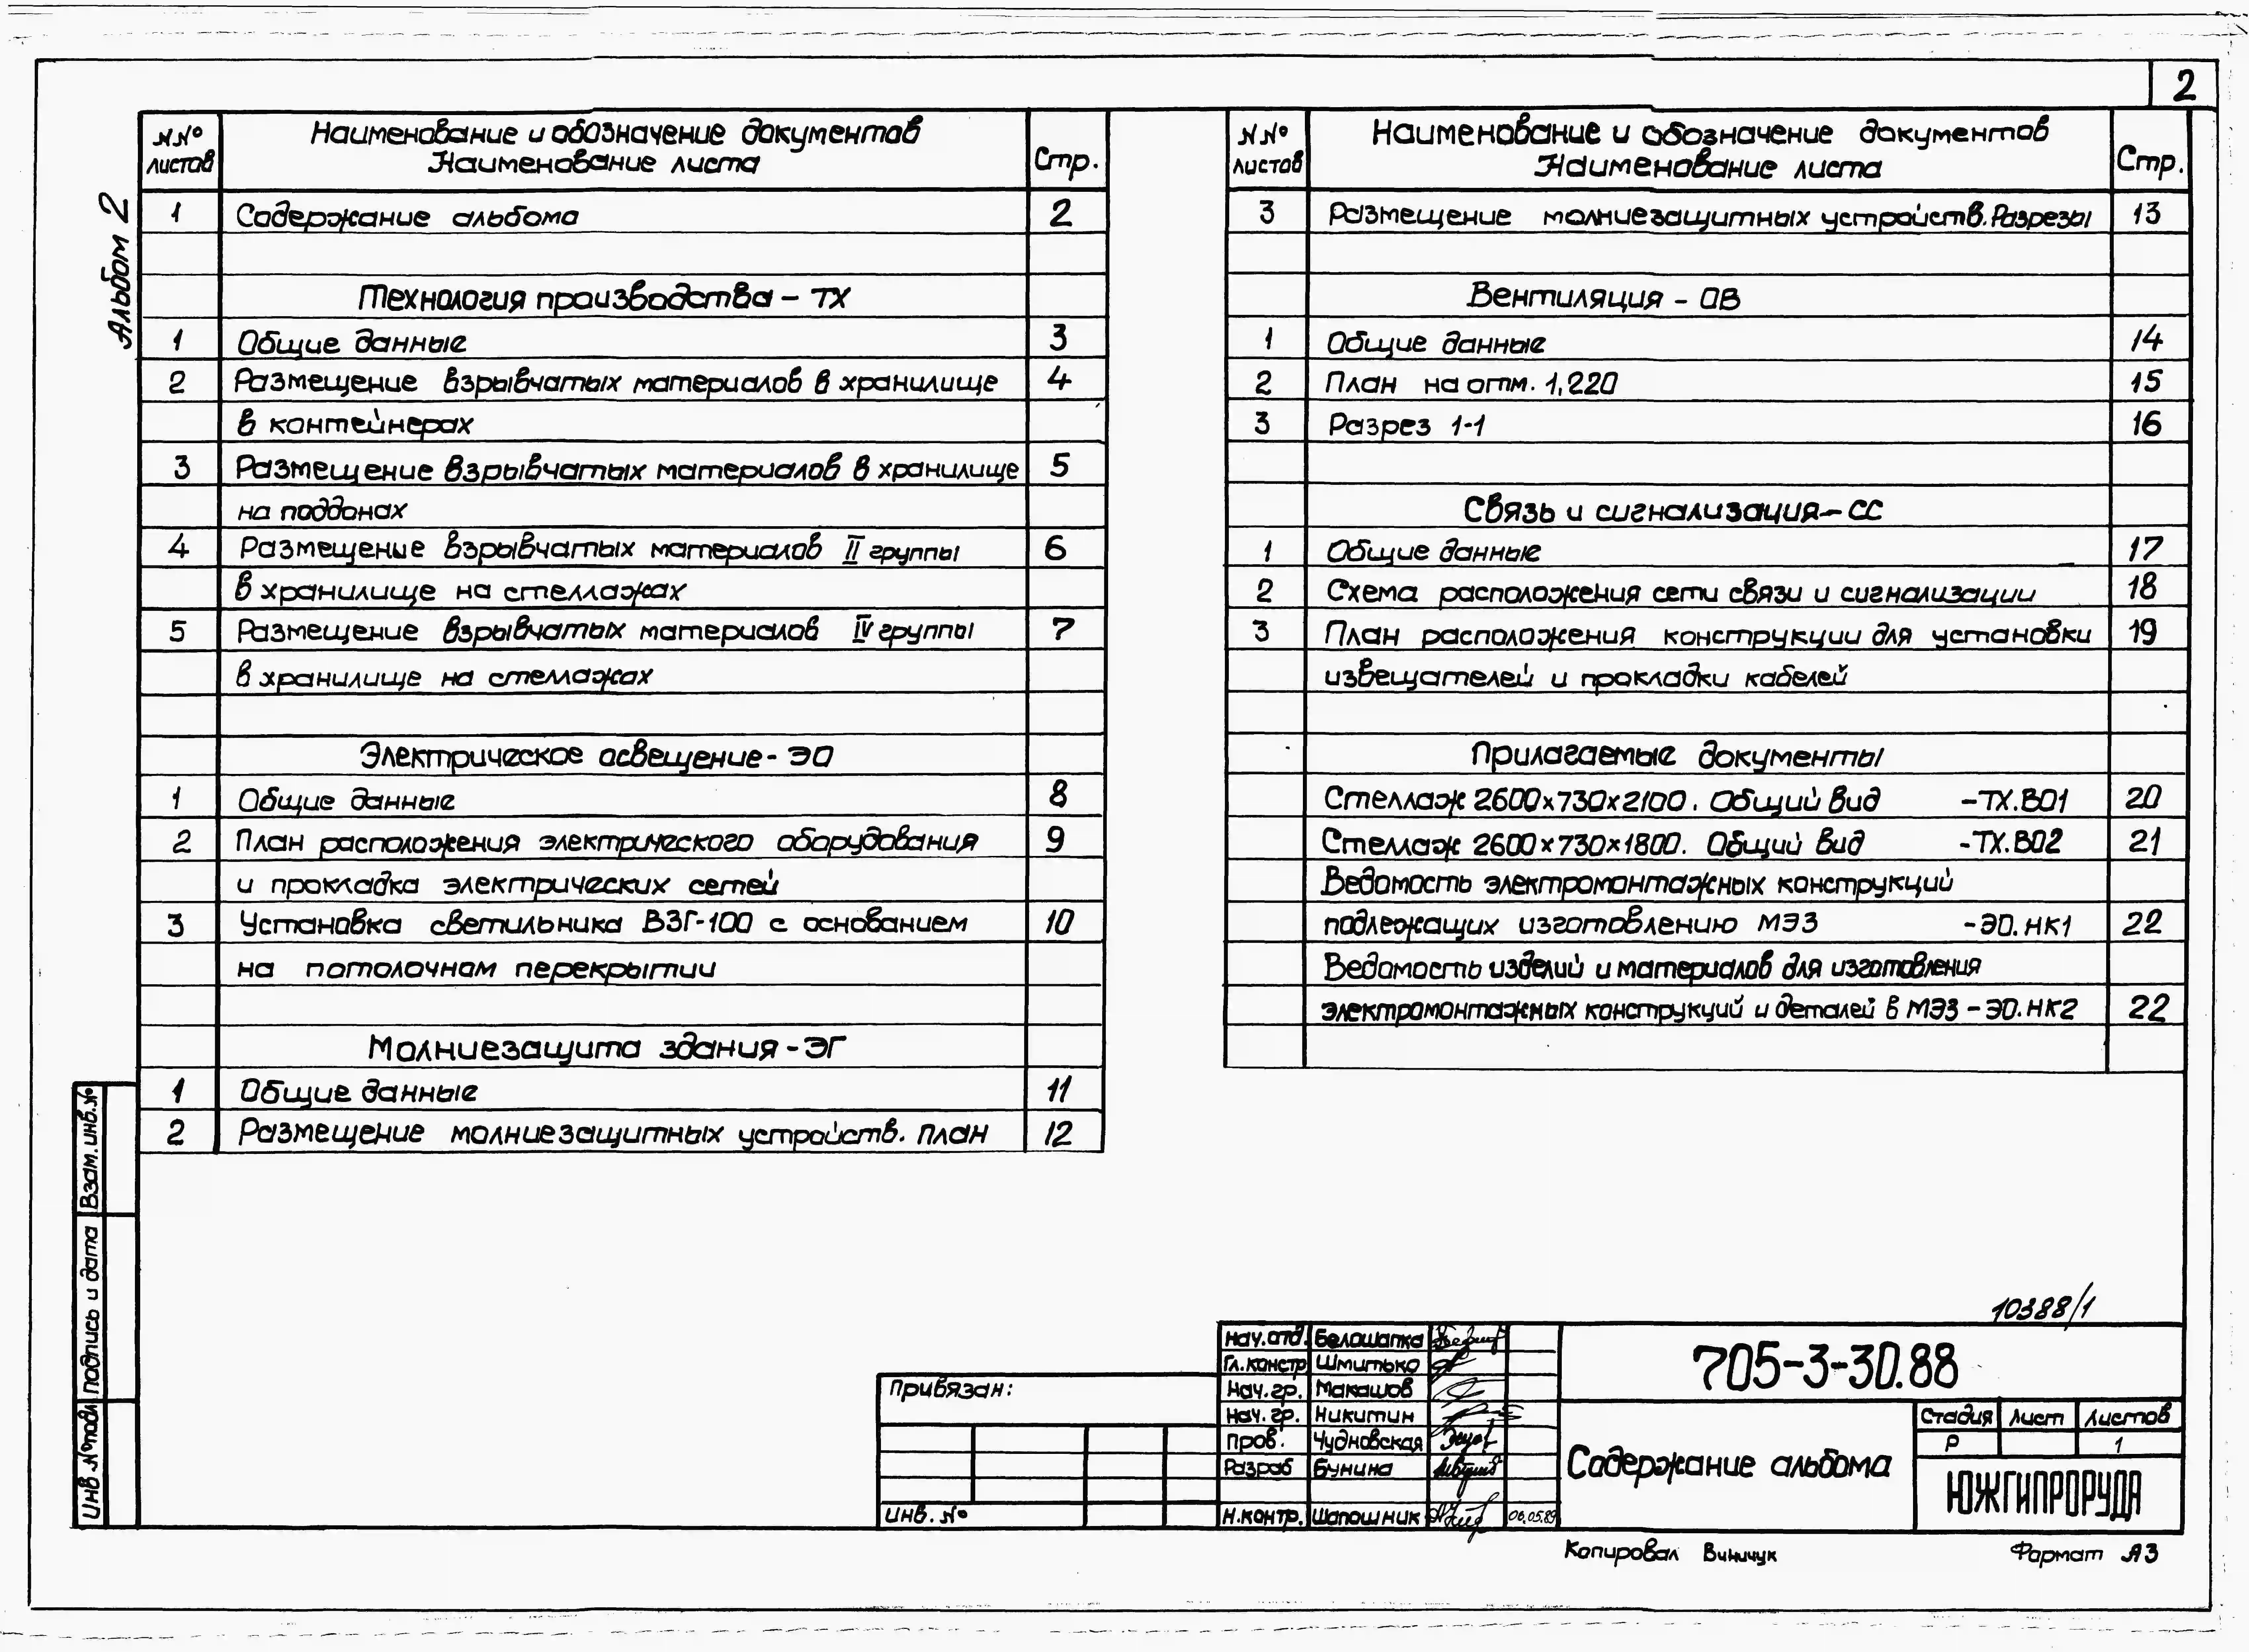 2
Альбом 2
NNº листов
Наименование и обозначение документов
Наименование листа
Стр.
1 Содержание альбома 2
Технология производства - ТХ
1 Общие данные 3
2 Размещение взрывчатых материалов в хранилище 4
в контейнерах
3 Размещение взрывчатых материалов в хранилище 5
на поддонах
4 Размещение взрывчатых материалов II группы 6
в хранилище на стеллажах
5 Размещение взрывчатых материалов IV группы 7
в хранилище на стеллажах
Электрическое освещение - ЭО
1 Общие данные 8
2 План расположения электрического оборудования 9
и прокладка электрических сетей
3 Установка светильника ВЗГ-100 с основанием 10
на потолочном перекрытии
Молниезащита здания - ЭГ
1 Общие данные 11
2 Размещение молниезащитных устройств. План 12
NNº листов
Наименование и обозначение документов
Наименование листа
Стр.
3 Размещение молниезащитных устройств. Разрезы 13
Вентиляция - ОВ
1 Общие данные 14
2 План на отм. 1,220 15
3 Разрез 1-1 16
Связь и сигнализация - СС
1 Общие данные 17
2 Схема расположения сети связи и сигнализации 18
3 План расположения конструкции для установки 19
извещателей и прокладки кабелей
Прилагаемые документы
Стеллаж 2600х730х2100. Общий вид -ТХ.ВО1 20
Стеллаж 2600х730х1800. Общий вид -ТХ.ВО2 21
Ведомость электромонтажных конструкций
подлежащих изготовлению МЭЗ -ЭО.НК1 22
Ведомость изделий и материалов для изготовления
электромонтажных конструкций и деталей в МЭЗ - ЭО.НК2 22
Взам.инв.№
Подпись и дата
Инв №подл
10388/1
Привязан:
Инв. №
Нач.отд. Белошапка
Гл.констр Шмитько
Нач.гр. Макашов
Нач.гр. Никитин
Пров. Чудновская
Разраб Бунина
Н.контр. Шапошник 06.05.89
705-3-30.88
Содержание альбома
Стадия Лист Листов
Р 1
ЮЖГИПРОРУДА
Копировал Винничук
Формат А3